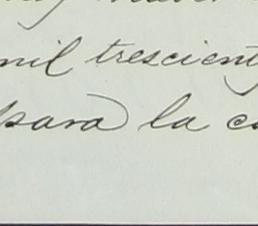 mil trescient
para la c